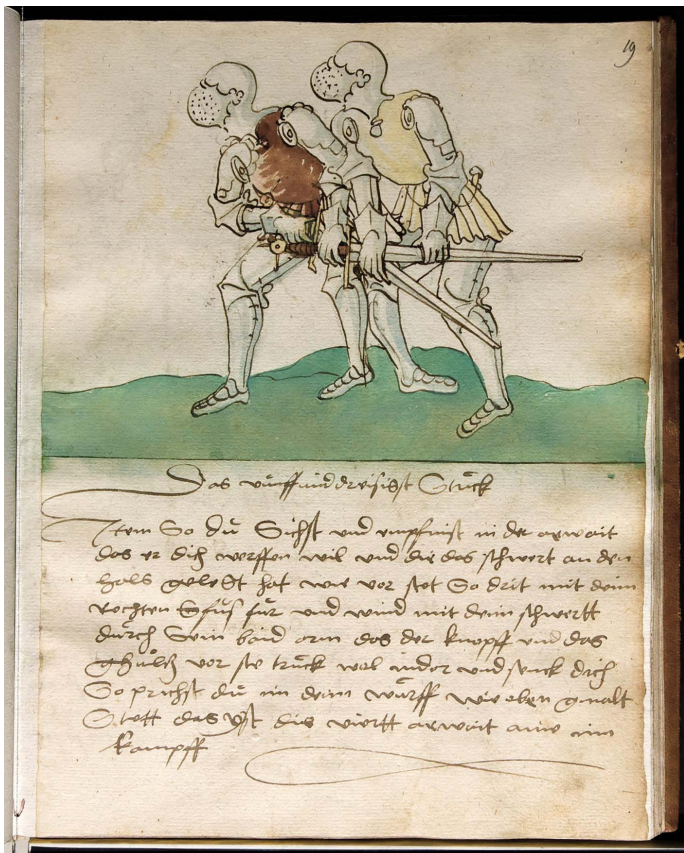 19
Das vünffunddreisigst Stück
Item So dü Sichst und empfinst in der arwait
das er dich werffen wil und dir das schwert an den
hals gelegt hat wie vor stet So drit mit deim
rechten füs für und wind mit dein schwertt
dürch Sein baid arm das der knopff und das
ghültz vor ste trück wol under und senck dich
So prichst dü im denn würff wie oben gmalt
Stett das yst die viertt arwait aine im
kampff